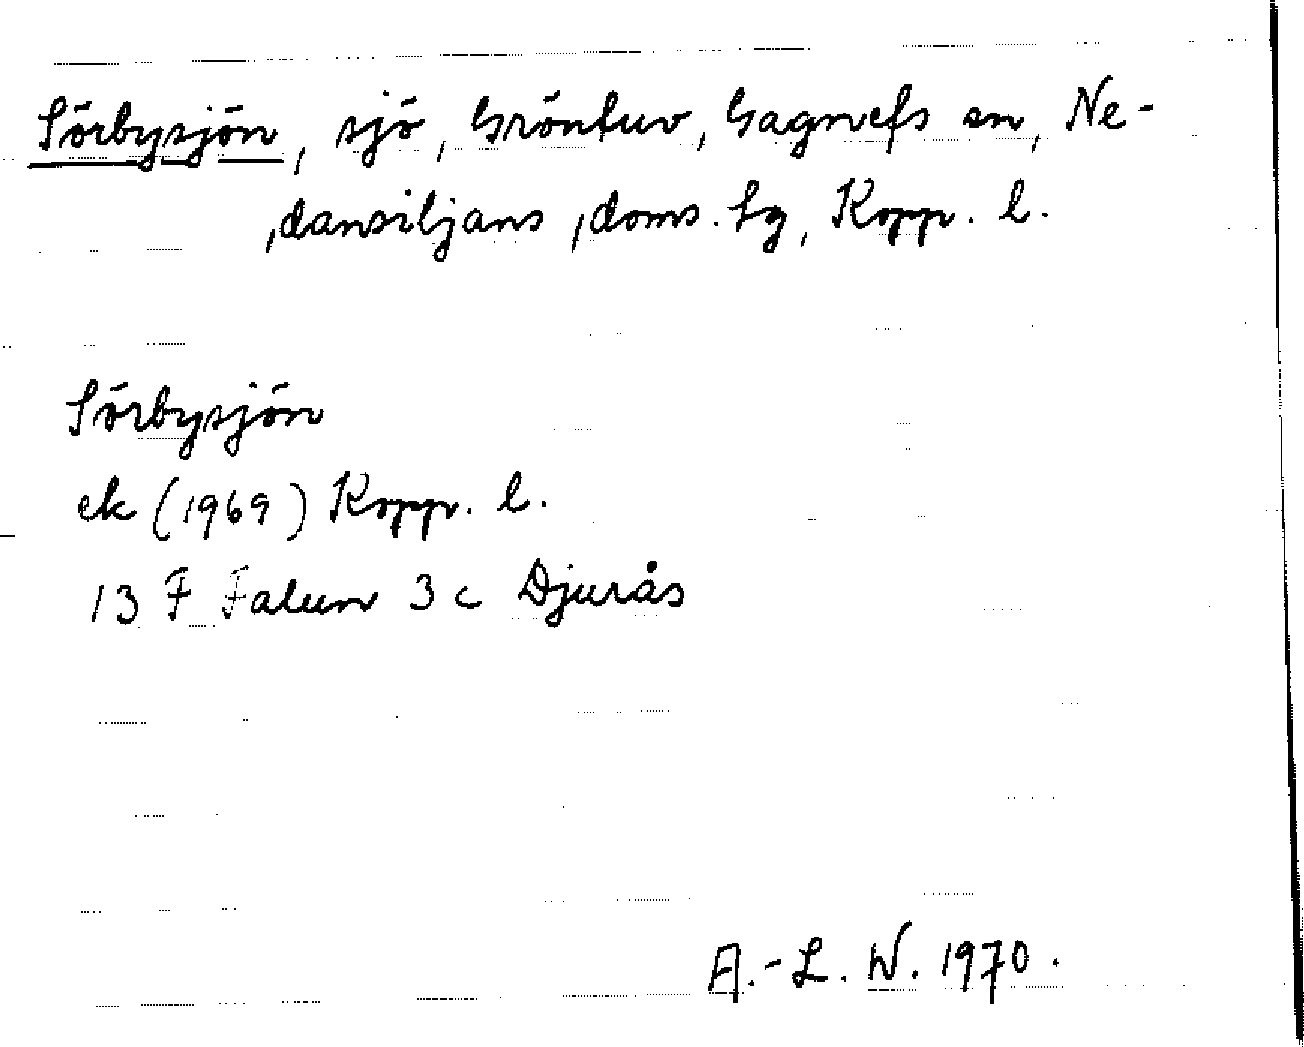 Sörbysjön, sjö, Gröntuv, Gagnefs sn, Ne-
dansiljans doms. tg, Kopp. l.
Sörbysjön
ek (1969) Kopp. l.
13 F Falun 3 c Djurås
A.-L. W. 1970.